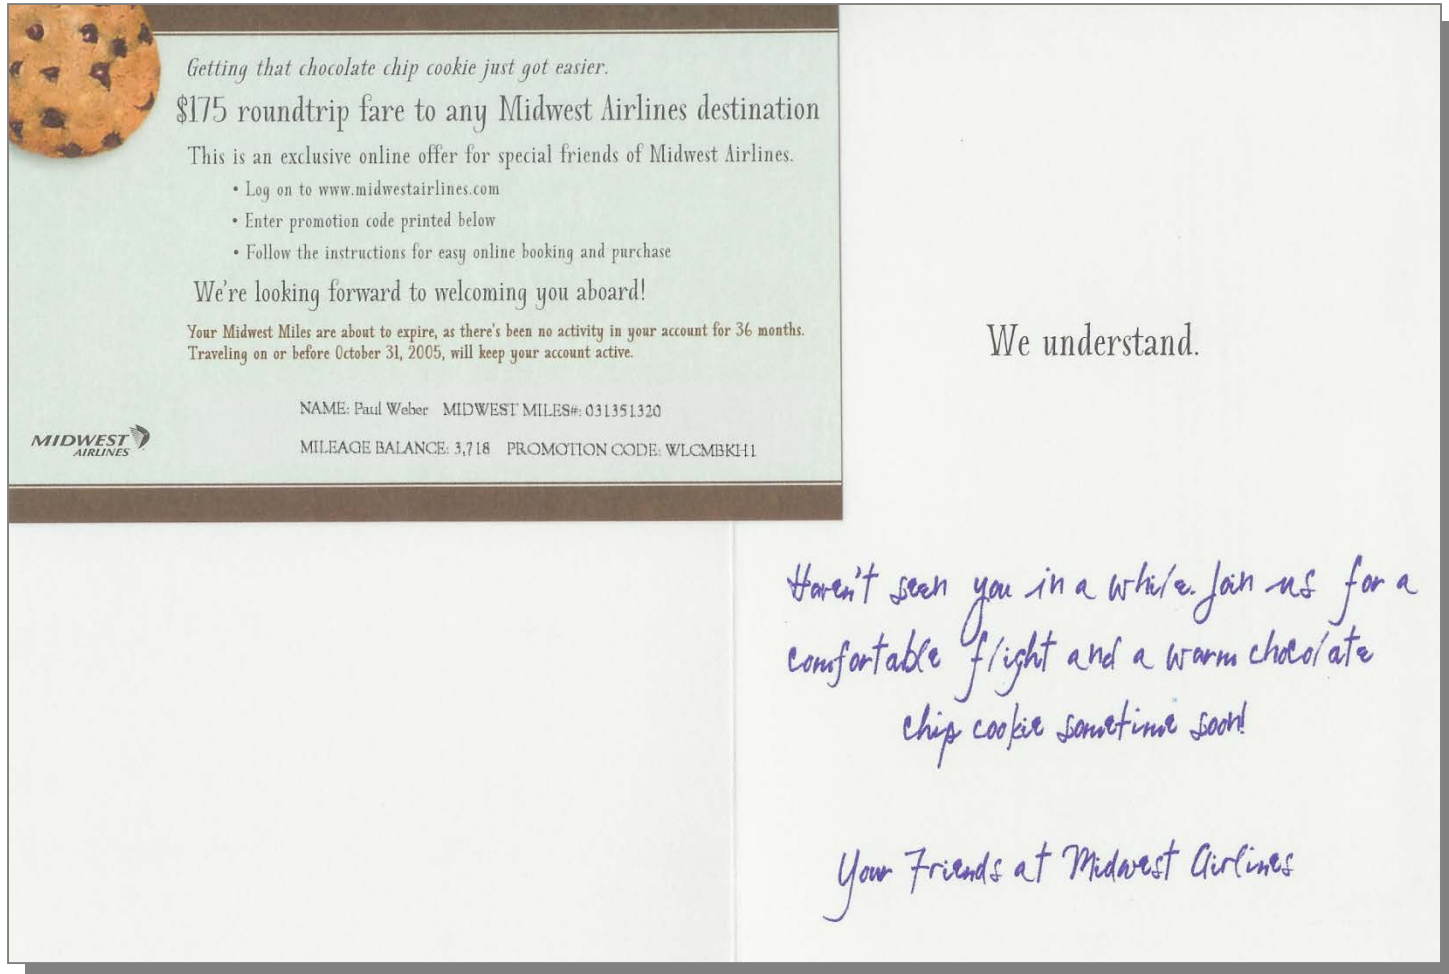 Getting that chocolate chip cookie just got easier.
$175 roundtrip fare to any Midwest Airlines destination
This is an exclusive online offer for special friends of Midwest Airlines.
• Log on to www.midwestairlines.com
• Enter promotion code printed below
• Follow the instructions for easy online booking and purchase
We're looking forward to welcoming you aboard!
Your Midwest Miles are about to expire, as there's been no activity in your account for 36 months.
Traveling on or before October 31, 2005, will keep your account active.
NAME: Paul Weber MIDWEST MILES#: 031351320
MILEAGE BALANCE: 3,718 PROMOTION CODE: WLCMBKH1
MIDWEST
AIRLINES
We understand.
Haven't seen you in a while. Join us for a
comfortable flight and a warm chocolate
chip cookie sometime soon!
Your Friends at Midwest Airlines